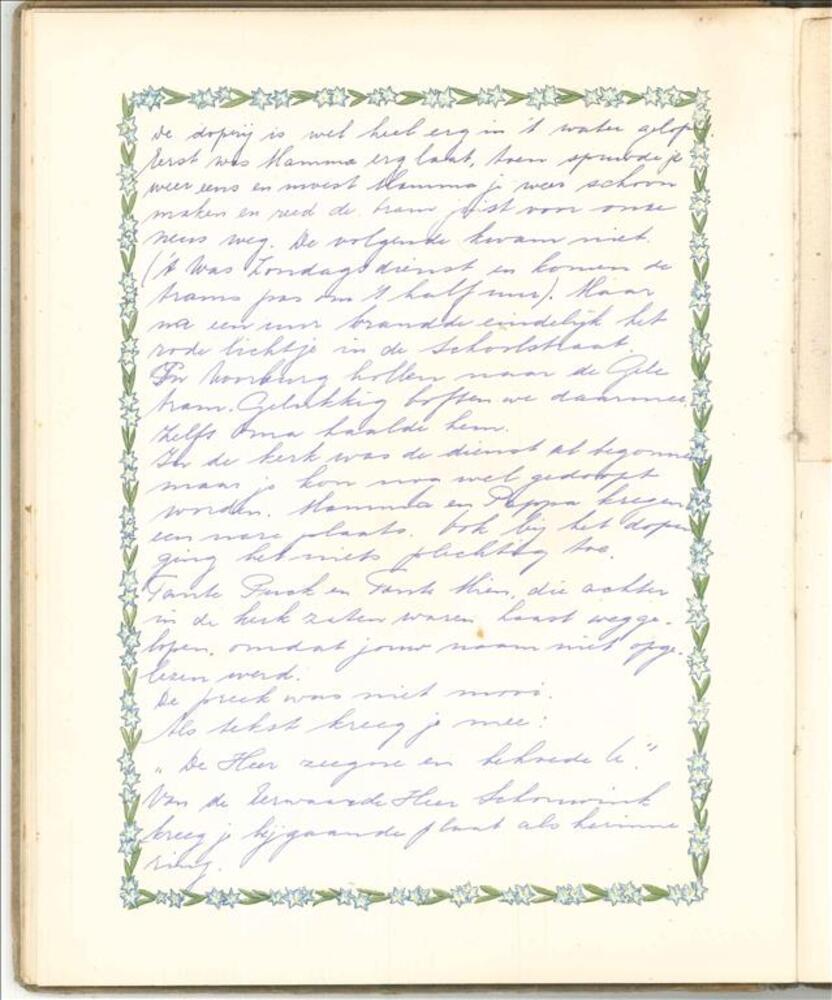 De doperij is wel heel erg in 't water gelopen.
Eerst was Mamma erg laat, toen spuwde je
weer eens en moest Mamma je weer schoon
maken en reed de tram juist voor onze
neus weg. De volgende kwam niet.
('t Was Zondagsdienst en komen de
trams pas om 't half uur). Maar
na een uur brandde eindelijk het
rode lichtje in de Schoolstraat.
In Voorburg hollen naar de Gele
tram. Gelukkig boften we daarmee,
zelfs Oma haalde hem.
In de kerk was de dienst al begonnen
maar je kon nog wel gedoopt
worden. Mamma en Pappa kregen
een nare plaats. Ook bij het dopen
ging het niets plechtig toe.
Tante Puck en Tante Mien, die achter
in de kerk zaten waren haast wegge-
lopen, omdat jouw naam niet opge-
lezen werd.
De preek was niet mooi.
Als tekst kreeg je mee:
"De Heer zegene en behoede U."
Van de Eerwaarde Heer Schouwink
kreeg je bijgaande plaat als herinne
ring.